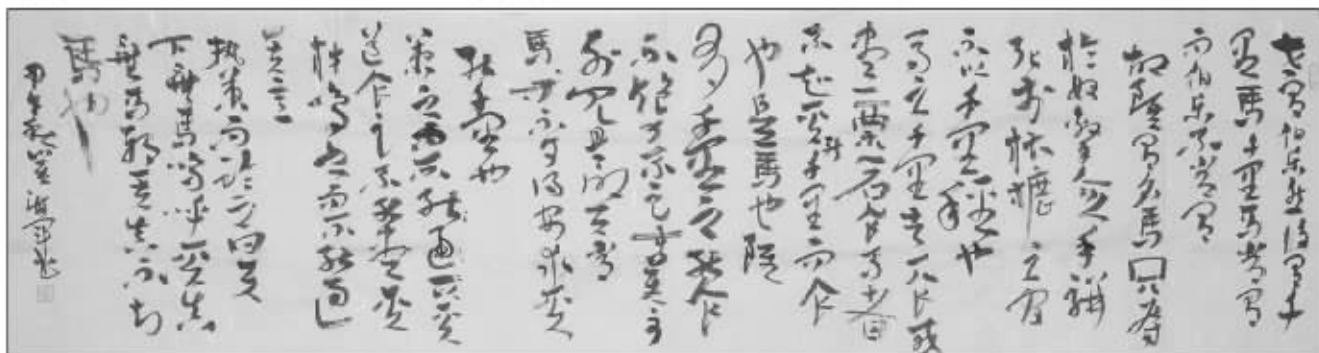 世有伯樂然後有千
里馬千里馬常有
而伯樂不常有
故雖有名馬只辱
於奴隸人之手駢
死於槽櫪之間
不以千里稱也
馬之千里者一食或
盡粟一石食馬者
不知其能千里而食
也是馬也雖
有千里之能食
不飽力不足才美不
外見且欲與常
馬等不可得安求其
能千里也
策之不以其
道食之不能盡其
材鳴之而不能通
其意
執策而臨之曰天
下無馬嗚呼其真
無馬邪其真不知
馬也
甲午秋